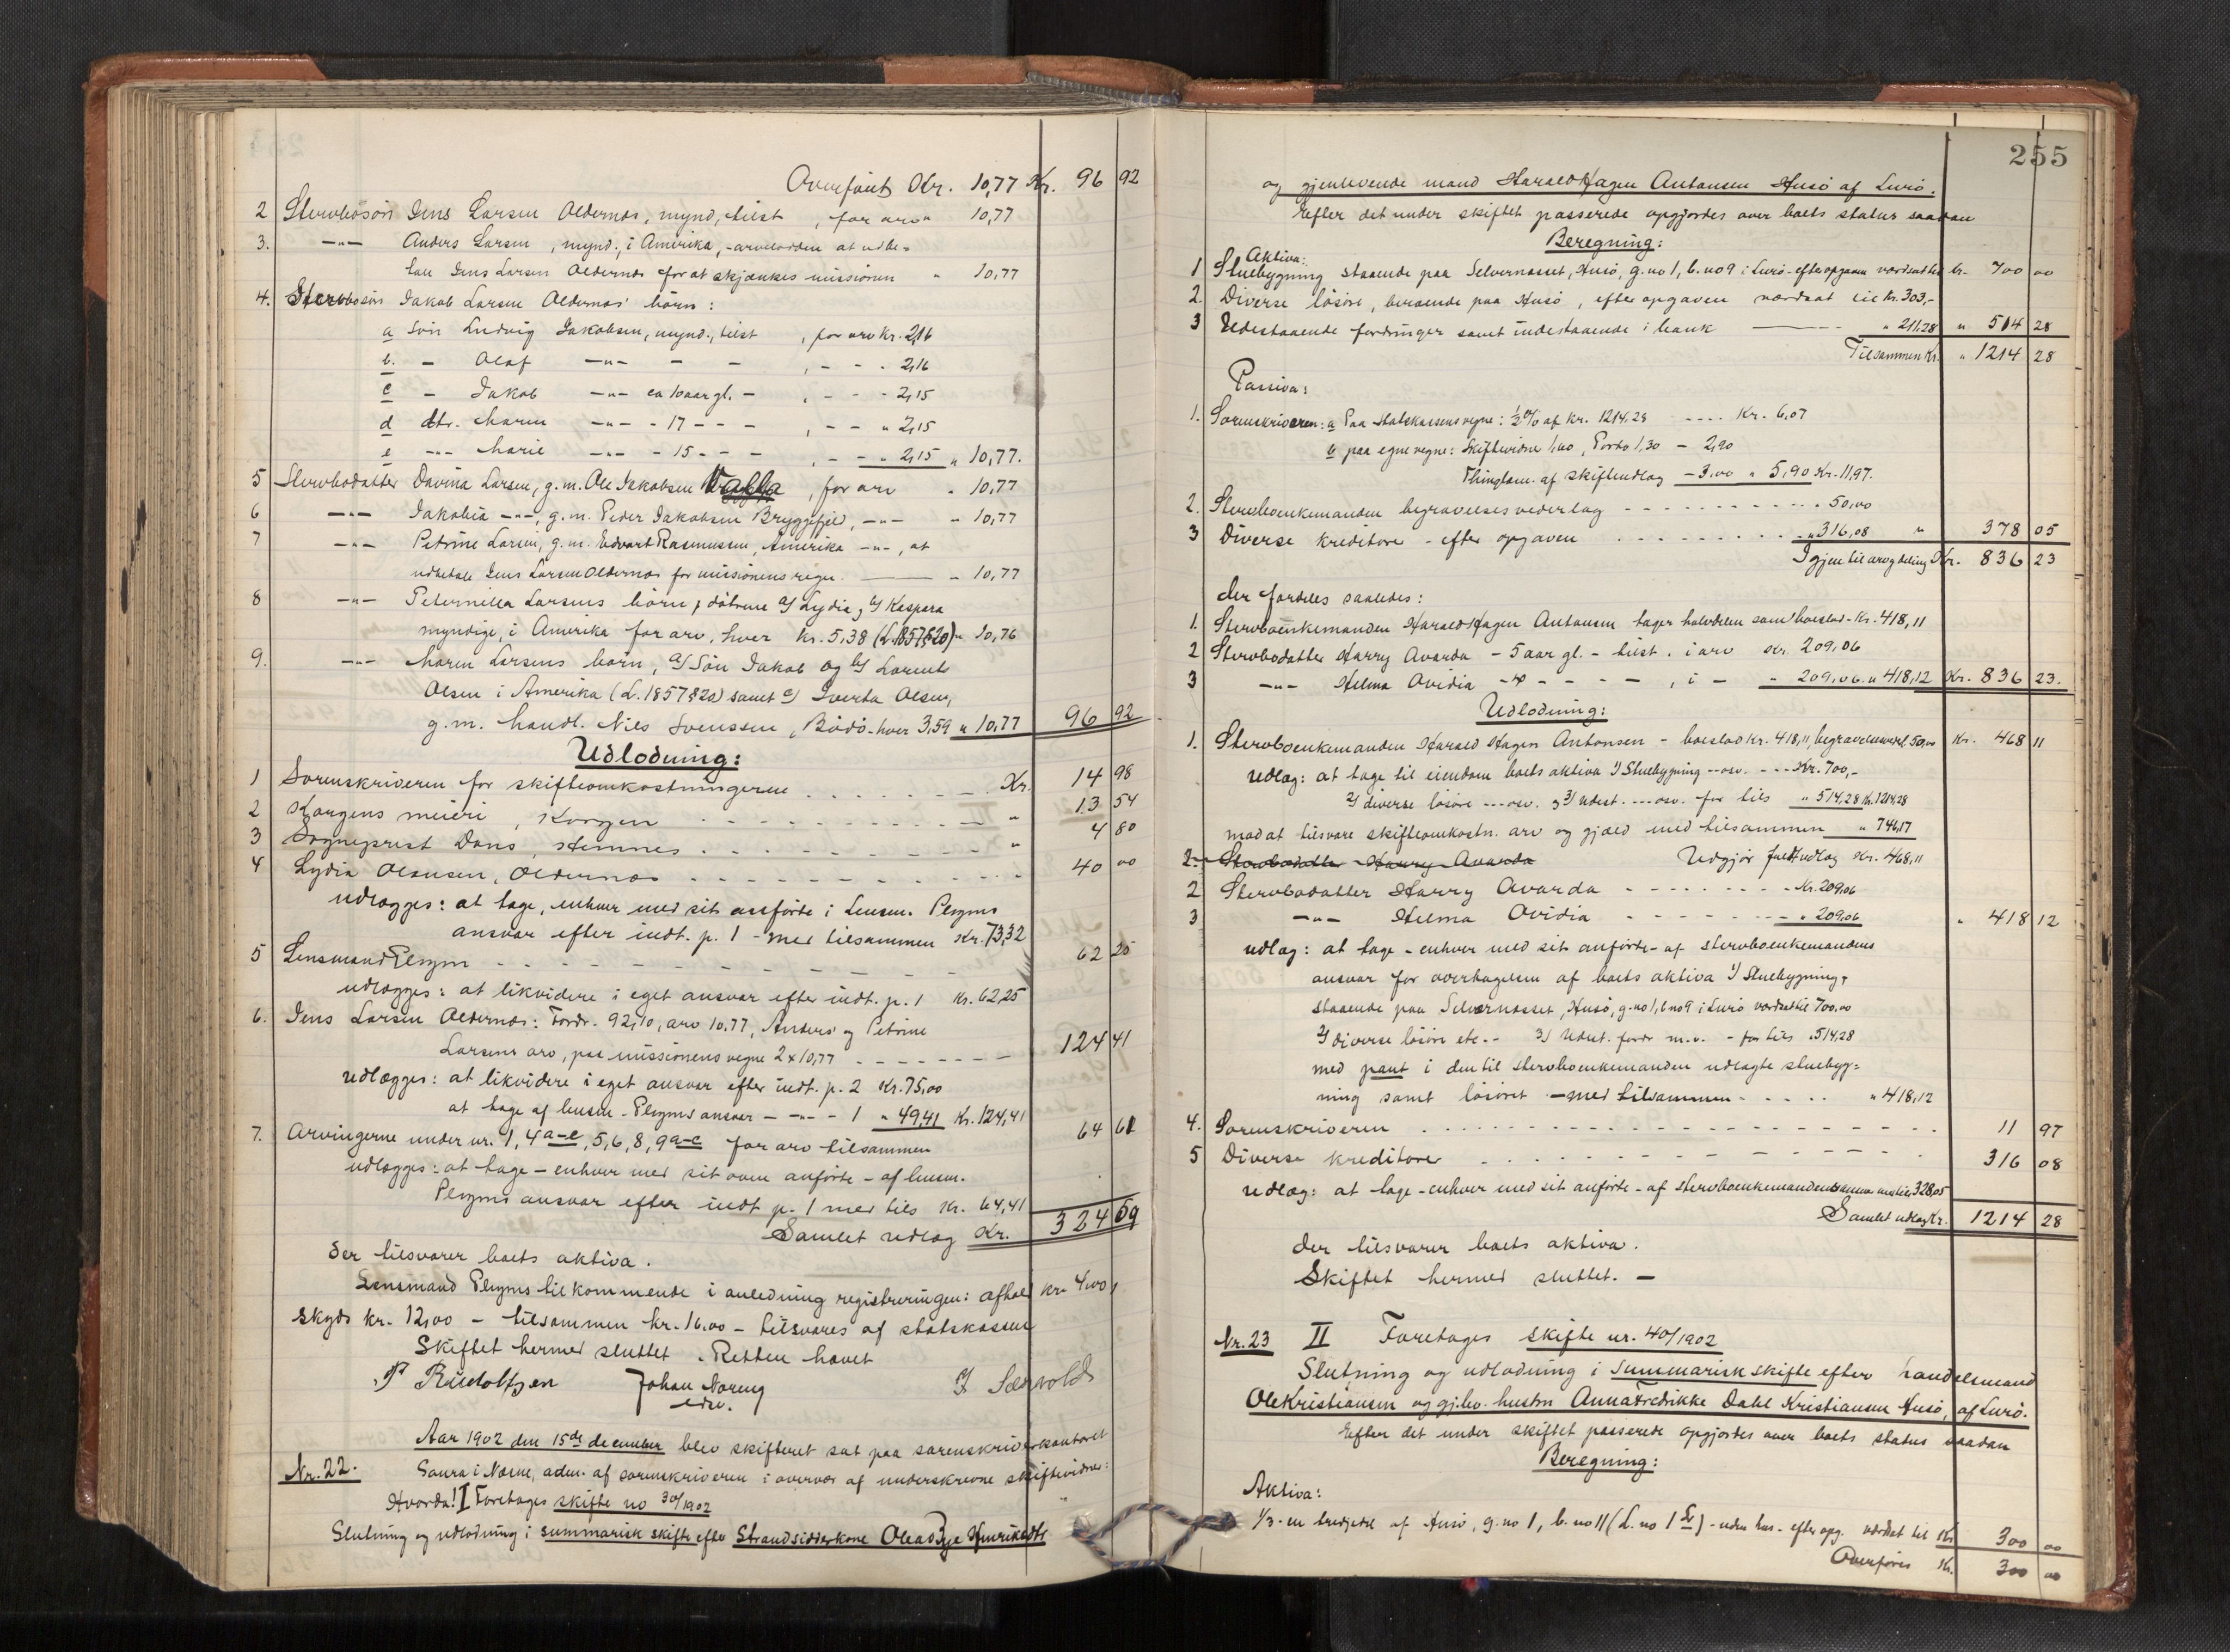 Overført Kr. 10,77 Kr. 96 92
2 Stervbosøn Jens Larsen Oldernes, mynd, tilst , for arv " 10,77
3. —"— Anders Larsen, mynd., i Amerika, - arvelodden at udbe-
tale Jens Larsen Oldernes for at skjænkes missionen " 10,77
4. Stervbosøn Jakob Larsen Oldernes' børn:
a Søn Ludvig Jakobsen, mynd., tilst , for arv kr. 2,16
b. - Olaf —"— - - , - - - 2,16
c - Jakob —"— aar gl. - , - - - 2,15
d dtr. Maren —"— - 17 - - - , - - " 2,15
e —"— Marie —"— - 15 - - - , - - " 2,15 " 10,77.
5 Stervbodatter Davina Larsen, g.m. Ole Jakobsen , for arv " 10,77
6 —"— Jakobia —"—, g.m. Peder Jakobsen Bryggefjeld, —"— " 10,77
7 —"— Petrine Larsen, g.m. Edvart Rasmussen, Amerika —"—, at
udbetale Jens Larsen Oldernes for missionens regn. — " 10,77
8 —"— Peternilla Larsens børn, døtrene a/ Lydia, b/ Kaspara
myndige, i Amerika for arv, hver kr. 5,38 (L. 1857 § 20) " 10,76
9. —"— Maren Larsens børn, a/ Søn Jakob og b/ Laurents
Olsen i Amerika (L. 1857 § 20) samt c/ Iverta Olsen,
g.m. handl. Nils Svenssen, Bodø - hver 3,59 " 10,77 96 92
Udlodning:
1 Sorenskriveren for skifteomkostningerne . . . . . . Kr. 14 98
2 Korgens meieri, Korgen - - - - - - " 13 54
3 Sogneprest Dons, Hemnes - - - - - - " 4 80
4 Lydia Olausen, Oldernes - - - - - - 40 00
udlægges: at tage, enhver med sit anførte i Lensm. Plejms
ansvar efter indt. p. 1 - med tilsammen Kr. 73,32
5 Lensmand Plejm - - - - - - 62 25
udlægges: at likvidere i eget ansvar efter indt. p. 1 Kr. 62,25
6. Jens Larsen Oldernes: Fordr. 92,10, arv 10,77, Anders og Petrine
Larsens arv, paa missionens vegne 2 x 10,77 - - - - - 124 41
udlægges: at likvidere i eget ansvar efter indt. p. 2 Kr. 75,00
at tage af lensm. Plejms ansvar — —"— - 1 " 49,41 Kr. 124,41
7. Arvingerne under nr. 1, 4 a-e, 5, 6, 8, 9 a-c for arv tilsammen 64 61
udlægges: at tage - enhver med sit oven anførte - af lensm.
Plejms ansvar efter indt p. 1 med tils Kr. 64,41
Samlet udlæg Kr. 324 59
der tilsvarer boets aktiva.
Lensmand Plejms tilkommende i anledning registreringen: afhol kr. 4,00,
skyds kr. 12,00 - tilsammen kr. 16,00 - tilsvares af statskassen
Skiftet hermed sluttet. Retten hævet
P Rudolfsen Johan Noreng J Sørvold
edsv.
Aar 1902 den 15de december blev skifteret sat paa sorenskriverkontoret
Nr. 22. Saura i Nesne, adm. af sorenskriveren i overvær af underskrevne skiftevidner:
Hvorda! I Foretages skifte no 30/1902
Slutning og udlodning i summarisk skifte efter Strandsidderkone Olea Henrikedtr
255
og gjenlevende mand Harald Hagen Antonsen Husø af Lurø.
Efter det under skiftet passerede opgjordes over boets status saadan
Beregning:
Aktiva:
1 Stuebygning staaende paa Selvernesset, Husø, g.no 1, b.no 9 i Lurø - efter opgaven værdsat til kr. 700 00
2. Diverse løsøre, beroende paa Husø, efter opgaven værdsat til Kr. 303,-
3 Udestaaende fordringer samt indestaaende i bank ——— " 211,28 " 514 28
Tilsammen Kr. " 1214 28
Passiva:
1. Sorenskriveren: a Paa Statskassens vegne: ½ % af kr. 1214,28 - - - - Kr. 6,07
b paa egne vegne: Skiftevidner 1,60, Porto 1,30 - 2,90
Thinglæsn. af skifteudlæg - 3,00 " 5,90 Kr. 11,97.
2. Stervboenkemanden begravelsesvederlag - - - - - - " 50,00
3 Diverse kreditorer - efter opgaven . . . . . . " 316,08 " 378 05
Igjen til arv og deling Kr. 836 23
der fordeles saaledes:
1. Stervboenkemanden Harald Hagen Antonsen tager halvdelen som boeslod - Kr. 418,11
2 Stervbodatter Harry Avarda - 5 aar gl. - tilst. i arv Kr. 209,06
3 —"— Helma Ovidia - 4 - - - - , i - " 209,06 " 418,12 Kr. 836 23.
Udlodning:
1. Stervboenkemanden Harald Hagen Antonsen - boeslod Kr. 418,11, begravelsesved. 50,00 Kr. 468 11
udlæg: at tage til eiendom boets aktiva 1/ Stuebygning --osv. - - - Kr. 700,-
2/ diverse løsøre ---osv. 3/ Udest. ---osv. for tils " 514,28 Kr. 1214,28
mod at tilsvare skifteomkostn. arv og gjæld med tilsammen " 746,17
2. Stervbodatter Harry Avarda Udgjør fuldt udlæg Kr. 468,11
2 Stervbodatter Harry Avarda - - - - - - - Kr. 209,06
3 —"— Helma Ovidia - - - - - - - " 209,06 " 418 12
udlæg: at tage - enhver med sit anførte - af stervboenkemandens
ansvar for overtagelsen af boets aktiva 1/ Stuebygning,
staaende paa Selvernesset, Husø, g.no 1, b no 9 i Lurø værdsat til 700,00
2/ diverse løsøre etc. - 3/ Udest. fordr m.v. - for tils " 514,28
med pant i den til stervboenkemanden udlagte stuebyg-
ning samt løsøret - med tilsammen - - - - . " 418,12
4. Sorenskriveren . . . . . . . . . . . . 11 97
5 Diverse kreditorer - - - - - - - - 316 08
udlæg: at tage - enhver med sit anførte - af stervboenkemandens ansvar med tils 328,05
Samlet udlæg Kr. 1214 28
der tilsvarer boets aktiva.
Skiftet hermed sluttet. —
Nr. 23 II Foretages skifte nr. 40/1902
Slutning og udlodning i summarisk skifte efter handelsmand
Ole Kristiansen og gj.lev. hustru Anna Fredrikke Dahl Kristiansen Husø, af Lurø.
Efter det under skiftet passerede opgjordes over boets status saadan
Beregning:
Aktiva:
1/3 - en tredjedel af Husø, g.no 1, b.no 11 (L. no 1 ) - uden hus - efter opg. værdsat til Kr 300 00
Overføres Kr. 300 00